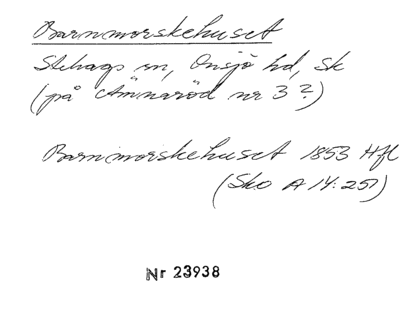 Barnmorskehuset
Stehags sn, Onsjö hd, Sk
(på Amnaröd nr 3?)
Barnmorskehuset 1853 Hfl
(Sko A 14:251)
Nr 23938